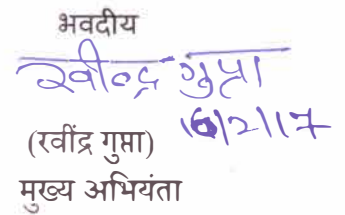 भवदीय
रवीन्द्र गुप्ता
16/2/17
(रवींद्र गुप्ता)
मुख्य अभियंता